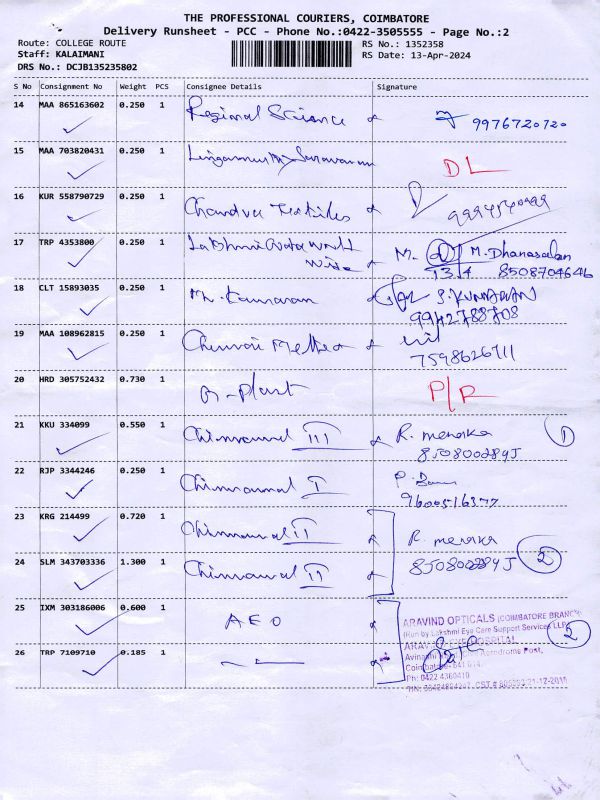 THE PROFESSIONAL COURIERS, COIMBATORE
Delivery Runsheet - PCC - Phone No.:0422-3505555 - Page No.:2
Route: COLLEGE ROUTE RS No.: 1352358
Staff: KALAIMANI RS Date: 13-Apr-2024
DRS No.: DCJB135235802
S No Consignment No Weight PCS Consignee Details Signature
14 MAA 865163602 0.250 1 Regional Science 9976720720
15 MAA 703820431 0.250 1 DL
16 KUR 558790729 0.250 1 Chandra Textiles
17 TRP 4353800 0.250 1 M. M. Dhanasalan
13 4 8508704646
18 CLT 15893035 0.250 1 M. Kumaran S. KUMARAN
9942788708
19 MAA 108962815 0.250 1 Chennai
7598626711
20 HRD 305752432 0.730 1 Plant P/R
21 KKU 334099 0.550 1 III R. menaka 1
8508002895
22 RJP 3344246 0.250 1 I P.
9600516377
23 KRG 214499 0.720 1 II R. menaka
24 SLM 343703336 1.300 1 II 8508002895 2
25 IXM 303186006 0.600 1 AEO
ARAVIND OPTICALS (COIMBATORE BRANCH)
(Run by Lakshmi Eye Care Support Services LLP)
2
26 TRP 7109710 0.185 1
ARAVIND HOSPITAL
Aerodrome Post,
Coimbatore- 641 014.
Ph: 0422 4360410